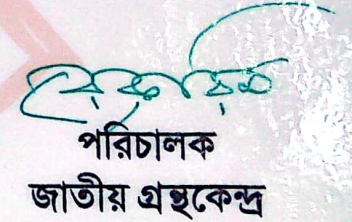 পরিচালক
জাতীয় গ্রন্থকেন্দ্র